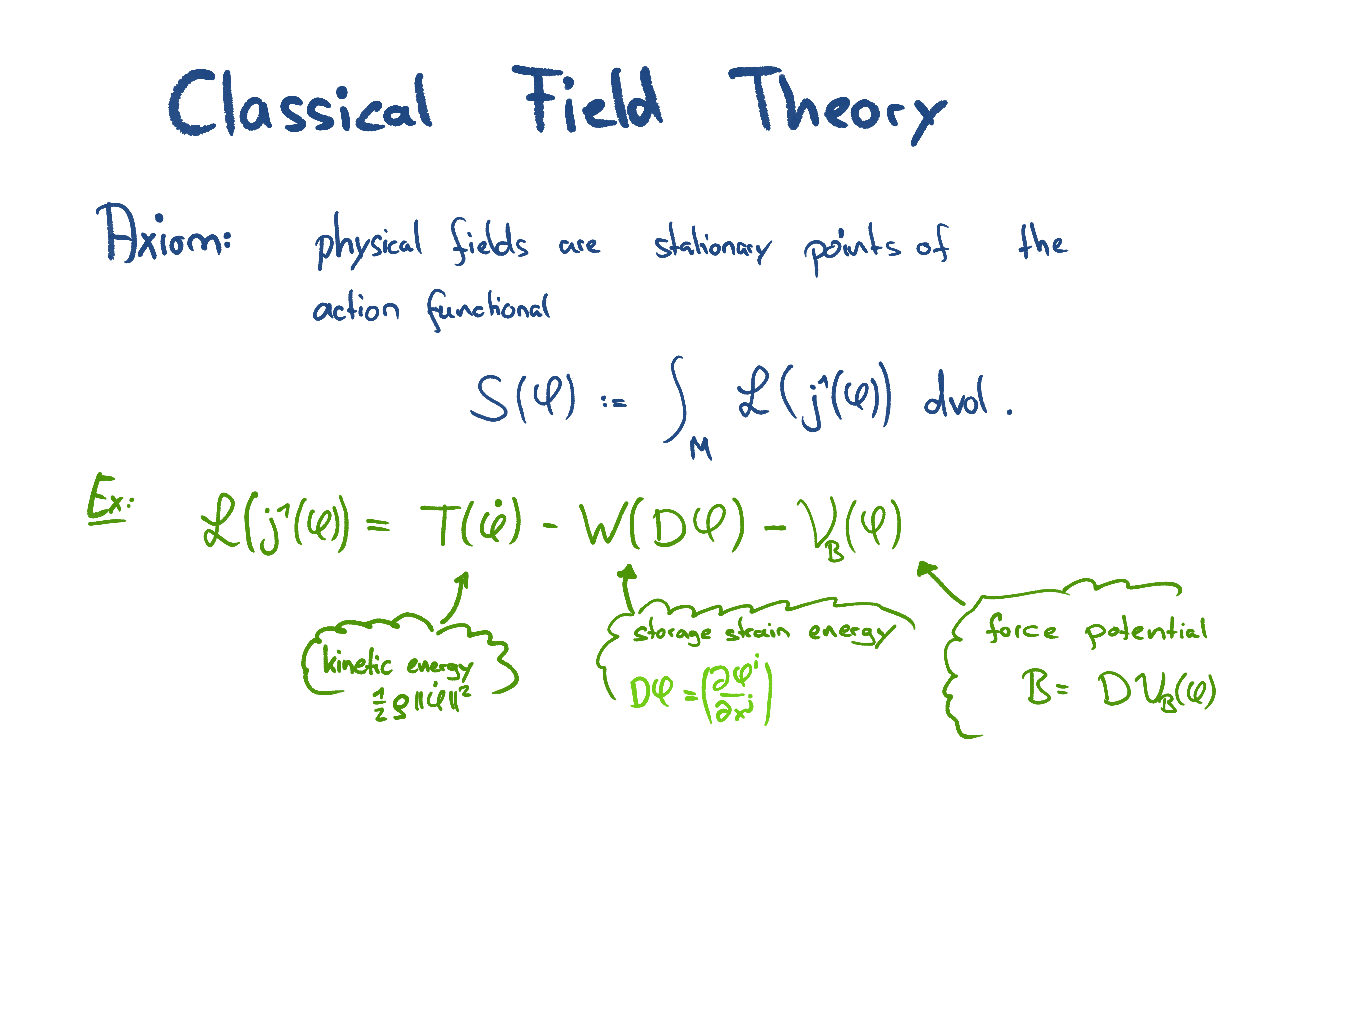 Classical Field Theory
Axiom: physical fields are stationary points of the
action functional
S(φ) := ∫_M ℒ(j¹(φ)) dvol.
Ex: ℒ(j¹(φ)) = T(φ̇) - W(Dφ) - 𝒱_B(φ)
kinetic energy
½ ρ ||φ̇||²
storage strain energy
Dφ = (∂φⁱ/∂xʲ)
force potential
B = D𝒱_B(φ)